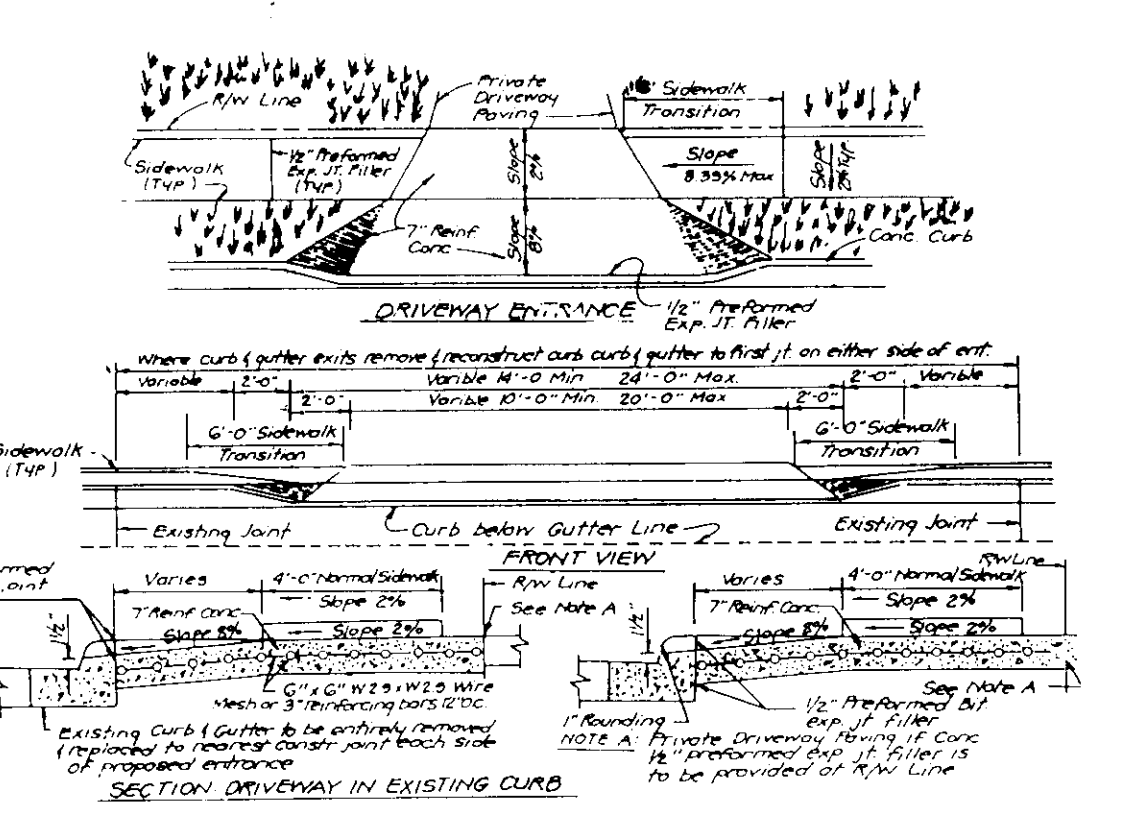 Private
Driveway
Paving
R/W Line
Sidewalk
Transition
Sidewalk
(TYP)
1/2" Preformed
Exp. JT. Filler
(TYP)
Slope
2%
Slope
8.33% Max
Slope
2% Typ
7" Reinf
Conc
Slope
8%
Conc. Curb
DRIVEWAY ENTRANCE
1/2" Preformed
Exp. JT. Filler
Where curb & gutter exits remove & reconstruct curb curb & gutter to first jt. on either side of ent.
Variable 2'-0" Varible 14'-0 Min 24'-0" Max. 2'-0" Varible
2'-0" Varible 10'-0" Min. 20'-0" Max 2'-0"
6'-0" Sidewalk
Transition
6'-0" Sidewalk
Transition
Sidewalk
(TYP)
Existing Joint
Curb below Gutter Line
Existing Joint
FRONT VIEW
Varies
4'-0" Normal Sidewalk
Slope 2%
R/W Line
See Note A
7" Reinf Conc.
1 1/2"
Slope 8%
Slope 2%
6" x 6" W2.9 x W2.9 Wire
Mesh or 3" reinforcing bars 12" O.C.
Existing Curb & Gutter to be entirely removed
& replaced to nearest constr joint each side
of proposed entrance
SECTION DRIVEWAY IN EXISTING CURB
R/W Line
Varies
4'-0" Normal Sidewalk
Slope 2%
7" Reinf Conc.
1 1/2"
Slope 8%
Slope 2%
See Note A
1/2" Preformed Bit.
exp. jt filler
1" Rounding
NOTE A: Private Driveway Paving if Conc
1/2" preformed exp. jt. filler is
to be provided at R/W Line